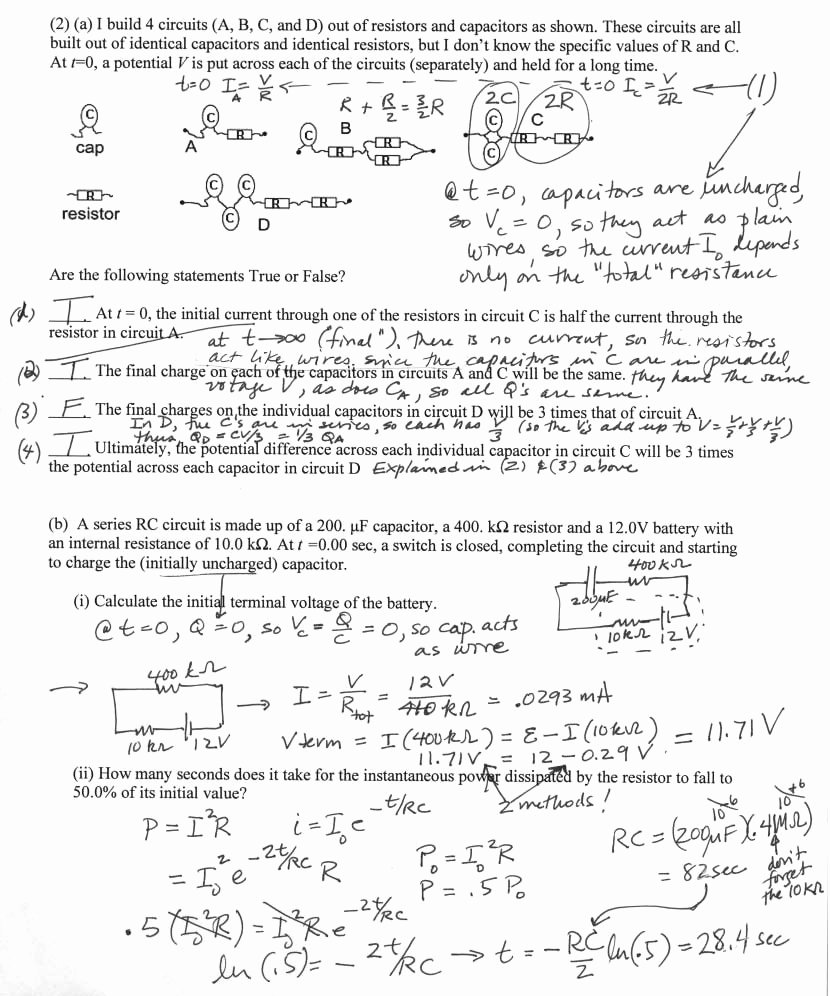 (2) (a) I build 4 circuits (A, B, C, and D) out of resistors and capacitors as shown. These circuits are all
built out of identical capacitors and identical resistors, but I don't know the specific values of R and C.
At t=0, a potential V is put across each of the circuits (separately) and held for a long time.
t=0 I_A = V/R ← t=0 I_C = V/2R ← (1)
R + R/2 = 3/2 R
2C 2R
C cap
A C R
B C R R R
C C C R R
R resistor
D C C C R R
@ t=0, capacitors are uncharged,
so V_c = 0, so they act as plain
wires, so the current I_0 depends
only on the "total" resistance
Are the following statements True or False?
(1) T At t = 0, the initial current through one of the resistors in circuit C is half the current through the
resistor in circuit A.
at t→∞ ("final"), there is no current, so the resistors
act like wires. since the capacitors in C are in parallel,
(2) T The final charge on each of the capacitors in circuits A and C will be the same. they have the same
voltage V, as does C_A, so all Q's are same.
(3) F The final charges on the individual capacitors in circuit D will be 3 times that of circuit A.
In D, the C's are in series, so each has V/3 (so the V's add up to V = V/3 + V/3 + V/3)
thus, Q_D = CV/3 = 1/3 Q_A
(4) T Ultimately, the potential difference across each individual capacitor in circuit C will be 3 times
the potential across each capacitor in circuit D Explained in (2) & (3) above
(b) A series RC circuit is made up of a 200. μF capacitor, a 400. kΩ resistor and a 12.0V battery with
an internal resistance of 10.0 kΩ. At t =0.00 sec, a switch is closed, completing the circuit and starting
to charge the (initially uncharged) capacitor.
400 kΩ
200μF
10kΩ 12V
(i) Calculate the initial terminal voltage of the battery.
@ t=0, Q=0, so V_c = Q/C = 0, so cap. acts
as wire
400 kΩ
10 kΩ 12V
→ I = V/R_tot = 12V/410 kΩ = .0293 mA
V term = I(400kΩ) = ε - I(10kΩ) = 11.71 V
11.71V = 12 - 0.29 V
(ii) How many seconds does it take for the instantaneous power dissipated by the resistor to fall to
50.0% of its initial value?
2 methods!
P = I²R i = I_0 e^-t/RC
= I_0² e^-2t/RC R
P_0 = I_0²R
P = .5 P_0
10^-6 10^+6
RC = (200μF)(.41MΩ)
= 82sec
don't
forget
the 10kΩ
.5 (I_0²R) = I_0²R e^-2t/RC
ln(.5) = -2t/RC → t = -RC/2 ln(.5) = 28.4 sec